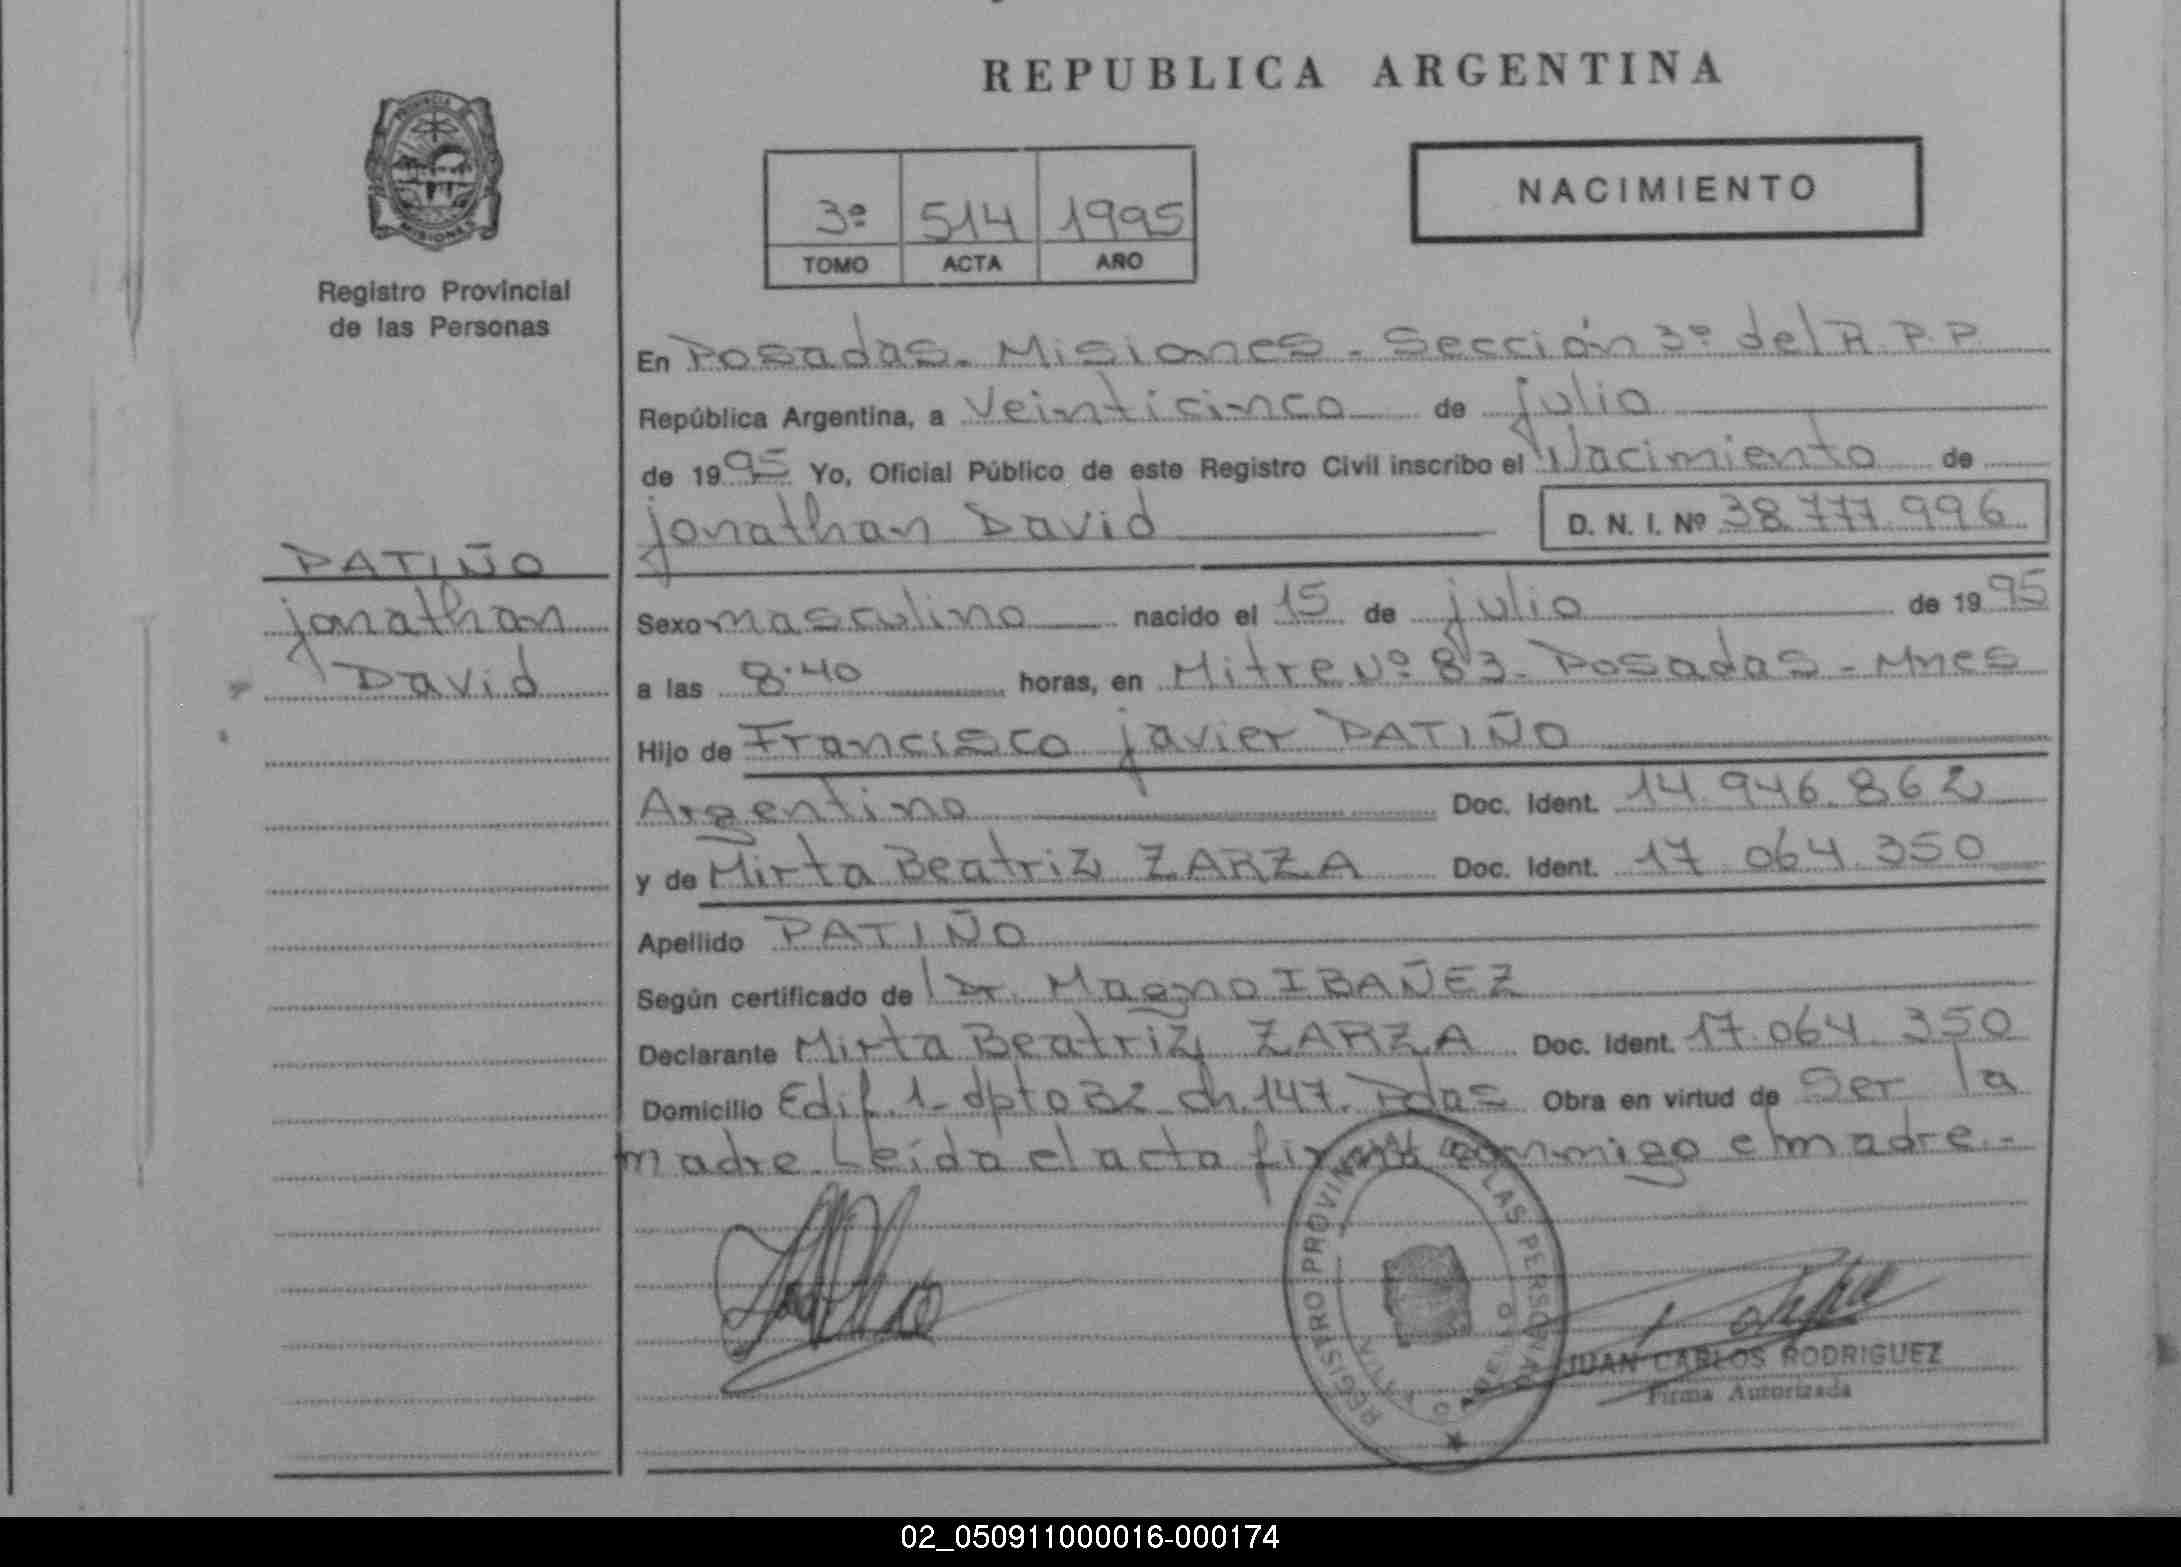 REPUBLICA ARGENTINA
PROVINCIA
MISIONES
Registro Provincial
de las Personas
NACIMIENTO
3º 514 1995
TOMO ACTA AÑO
En Posadas - Misiones - Sección 3º del R.P.P.
República Argentina, a Veinticinco de julio
de 1995 Yo, Oficial Público de este Registro Civil inscribo el Nacimiento de
jonathan David D. N. I. Nº 38.777.996
PATIÑO
jonathan
David
Sexo masculino nacido el 15 de julio de 1995
a las 8:40 horas, en Mitre Nº 83 - Posadas - Mnes
Hijo de Francisco javier PATIÑO
Argentino Doc. Ident. 14.946.862
y de Mirta Beatriz ZARZA Doc. Ident. 17.064.350
Apellido PATIÑO
Según certificado de Dr. Magno IBAÑEZ
Declarante Mirta Beatriz ZARZA Doc. Ident. 17.064.350
Domicilio Edif. 1 - dpto 32 ch. 147. Pdas Obra en virtud de Ser la
madre. Leída el acta firma conmigo el madre.-
REGISTRO PROVINCIAL DE LAS PERSONAS
JUAN CARLOS RODRIGUEZ
Firma Autorizada
02_050911000016-000174